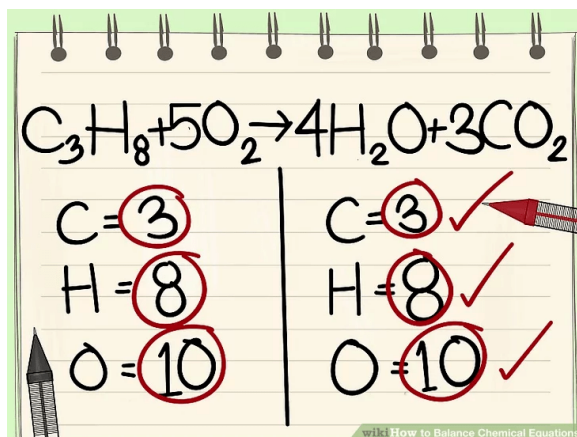 C₃H₈+5O₂→4H₂O+3CO₂
C=3
H=8
O=10
C=3✓
H=8✓
O=10✓
wikiHow to Balance Chemical Equations